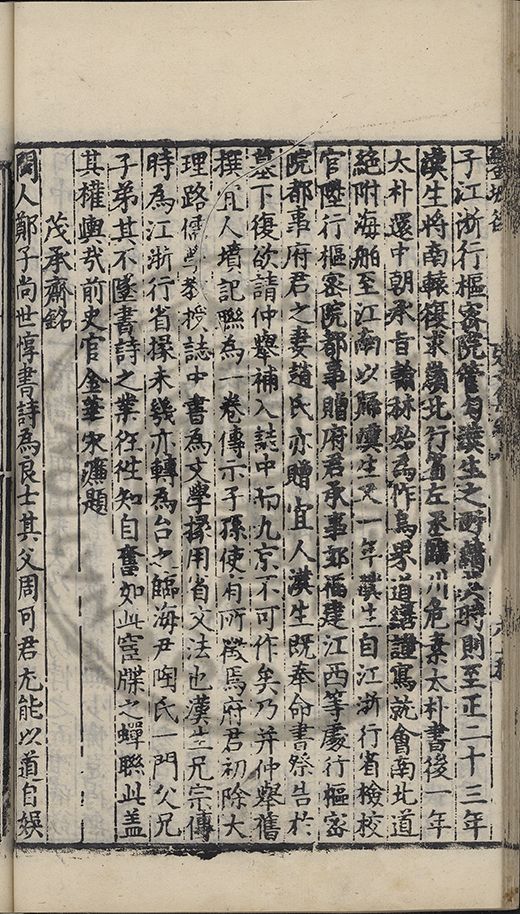 子江浙行樞密院管勾漢生之所請也時則至正二十三年
漢生將南轅復求嶺北行省左丞臨川危素太朴書後一年
太朴還中朝承旨翰林始為作烏眾道繕謹寫就會南北道
絕附海舶至江南以歸漢生又一年漢生自江浙行省檢校
官陞行樞密院都事贈府君承事郎福建江西等處行樞密
院都事府君之妻趙氏亦贈宜人漢生既奉命書祭告於
墓下復欲請仲舉補入誌中而九京不可作矣乃并仲舉舊
撰宜人墳記聯為一卷傳示子孫使有所徵焉府君初除大
理路儒學教授誌中書為文學掾用省文法也漢生兄宗傳
時為江浙行省掾未幾亦轉為台之臨海尹陶氏一門父兄
子弟其不墜書詩之業往往知自奮如此窀牒之蟬聯此蓋
其權輿哉前史官金華宋濂題
茂承齋銘
閩人鄭子尚世惇書詩為良士其父周可君尤能以道自娛